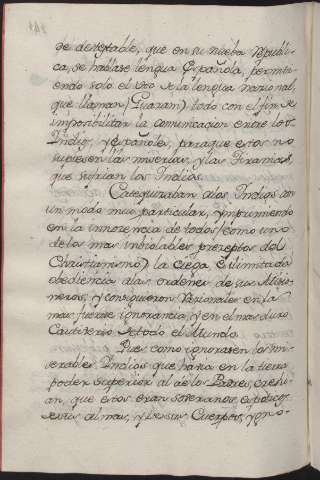 de detestable, que en su nueba Republi-
ca, se hablase lengua Española, permiti-
endo solo el uso de la lengua nacional,
que llaman (Guarani) todo con el fin de
imposibilitar la comunicacion entre los
Indios, y Españoles, para que estos no
supiesen las miserias, y las tiranias,
que sufrian los Indios.
Catequizaban a los Indios con
un modo muy particular, ymprimiendo
en la innocencia de todos (como uno
de los mas inbiolables preceptos del
Christianismo) la ciega, è ilimitada
obediencia a las ordenes de sus Misio-
neros, y consiguieron tenerlos en la
mas fuerte ignorancia, y en el mas duro
Cautiverio de todo el Mundo.
Pues como ignorasen los mi-
serables Indios que había en la tierra
poder superior al de los Padres, crehi-
an, que estos eran soveranos espoticos
de sus almas, y de sus Cuerpos, y gno-